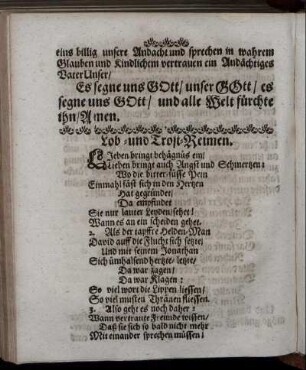 eins billig unsere Andacht und sprechen in wahrem
Glauben und Kindlichem vertrauen ein Andächtiges
Vater Unser/
Es segne uns GOtt/ unser GOtt/ es
segne uns GOtt/ und alle Welt fürchte
ihn/ Amen.
Lob- und Trost-Reimen.
LIeben bringt behägnüs ein/
Lieben bringt auch Angst und Schmertzen:
Wo die bitter-süsse Pein
Einmahl fäst sich in den Hertzen
Hat gegründet/
Da empfindet
Sie nur lauter Leyden sehet/
Wann es an ein scheiden gehet.
2. Als der tapffre Helden-Man
David auff die Flucht sich setzte/
Und mit seinem Jonathan
Sich ümhalsend hertzte/ letzte/
Da war zagen/
Da war Klagen:
So viel wort die Lippen liessen/
So viel musten Thränen fliessen.
3. Also geht es noch daher:
Wann vertraute Freunde wissen/
Daß sie sich so bald nicht mehr
Mit einander sprechen müssen;